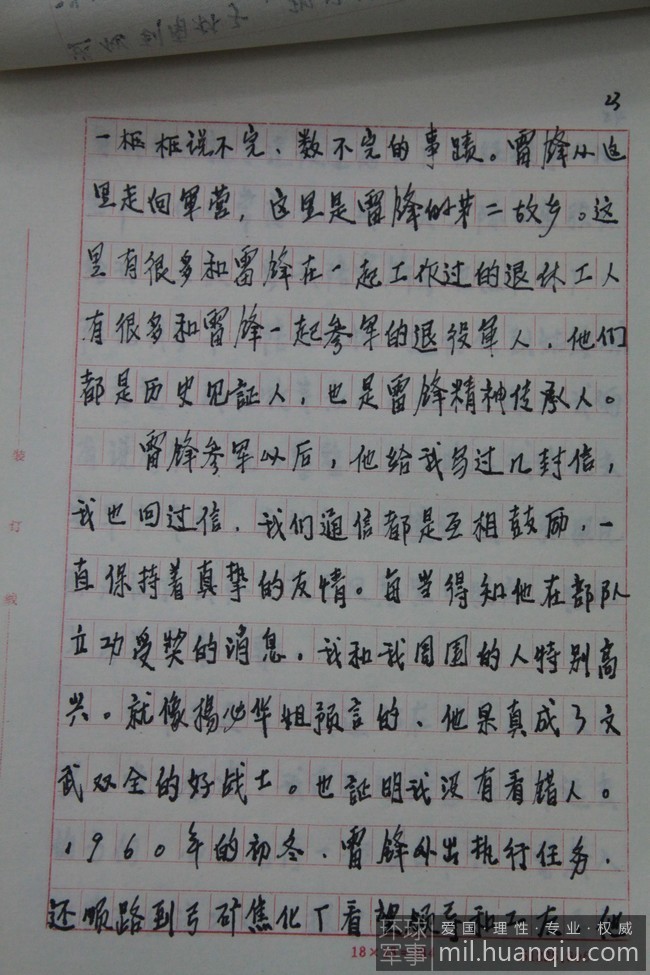 23
一桩桩说不完、数不完的事蹟。雷锋从这
里走向军营，这里是雷锋的第二故乡。这
里有很多和雷锋在一起工作过的退休工人
有很多和雷锋一起参军的退役军人，他们
都是历史见証人，也是雷锋精神传承人。
雷锋参军以后，他给我写过几封信，
我也回过信，我们通信都是互相鼓励，一
直保持着真挚的友情。每当得知他在部队
立功受奖的消息，我和我周围的人特别高
兴。就像杨必华姐预言的、他果真成了文
武双全的好战士。也証明我没有看错人。
1960年的初冬、雷锋外出执行任务，
还顺路到弓矿焦化厂看望领导和工友，他
装订线
18×
环球军事
爱国·理性·专业·权威
mil.huanqiu.com